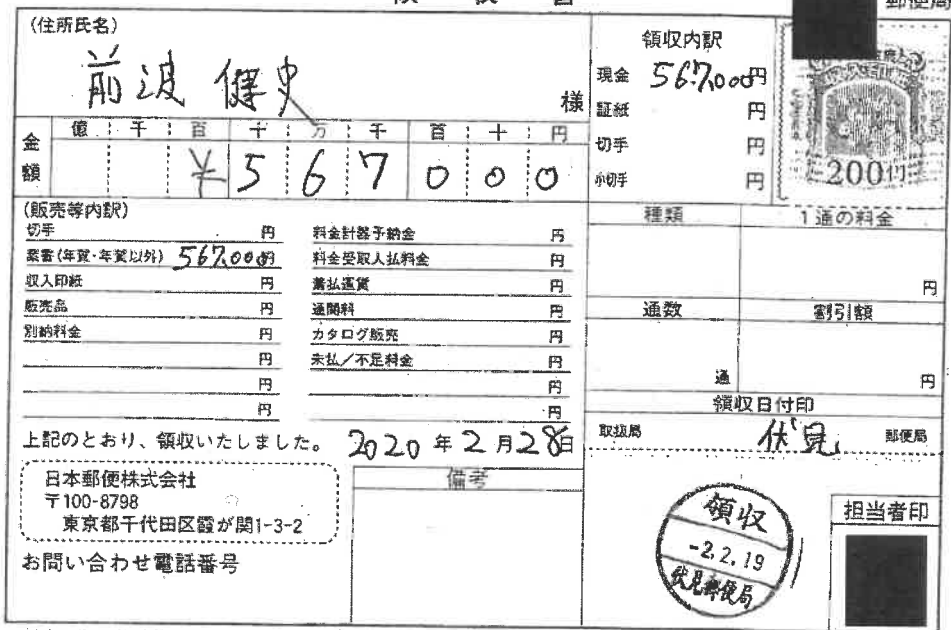 領収書
郵便局
(住所氏名)
前波 健史 様
領収内訳
現金 567,000円
証紙 円
切手 円
小切手 円
200円
金額
億 千 百 十 万 千 百 十 円
¥ 5 6 7 0 0 0
(販売等内訳)
切手 円
葉書(年賀・年賀以外) 567,000円
収入印紙 円
販売品 円
別納料金 円
円
円
円
料金計器予納金 円
料金受取人払料金 円
着払運賃 円
通関料 円
カタログ販売 円
未払/不足料金 円
円
円
種類 1通の料金
円
通数 割引額
通 円
領収日付印
上記のとおり、領収いたしました。 2020年2月28日
取扱局 伏見 郵便局
日本郵便株式会社
〒100-8798
東京都千代田区霞が関1-3-2
お問い合わせ電話番号
備考
領収
-2.2.19
伏見郵便局
担当者印